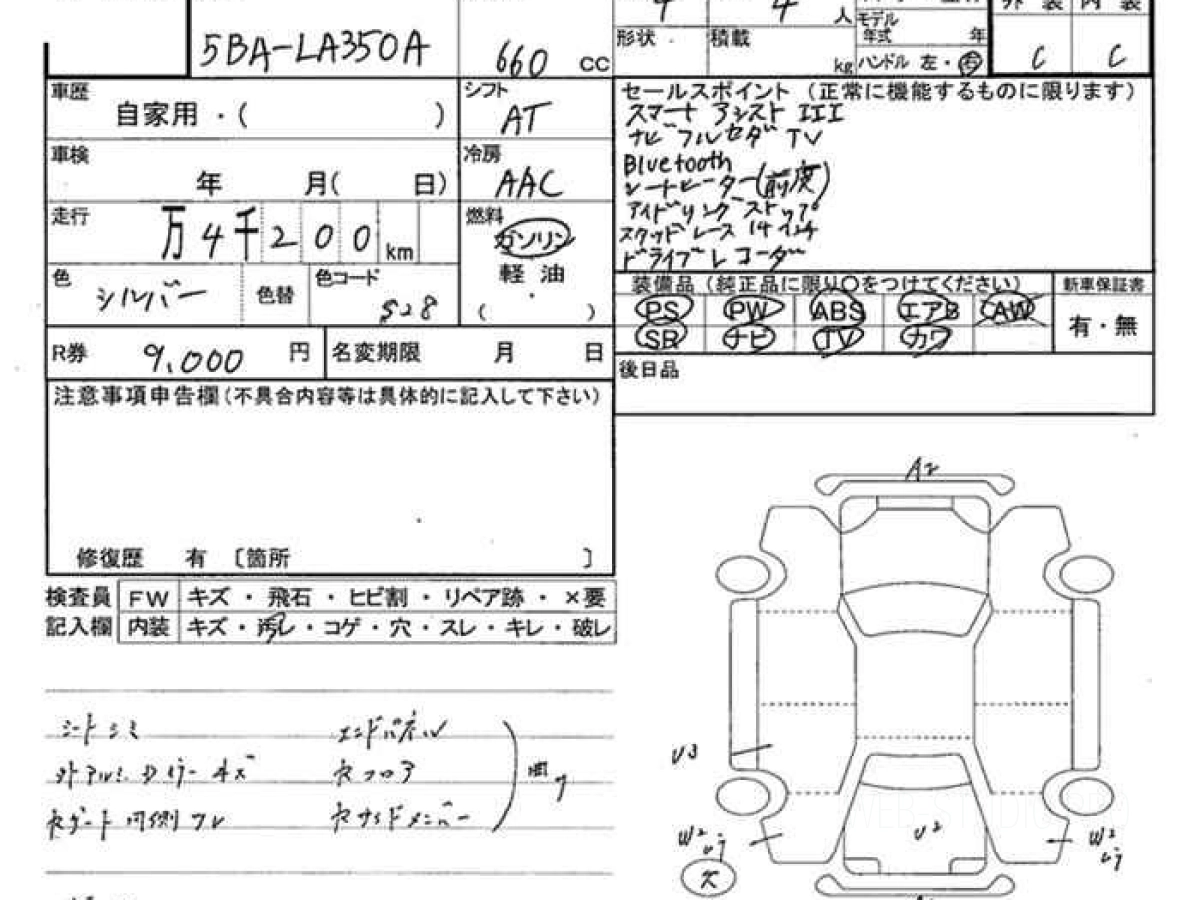 人
モデル
年式 年
5BA-LA350A
660 cc
形状 積載 kg
ハンドル 左・右
C C
車歴
自家用・( )
シフト
AT
車検
年 月( 日)
冷房
AAC
走行
万4千200 km
燃料
ガソリン
軽油
( )
色
シルバー
色替
色コード
S28
R券
9,000 円
名変期限 月 日
セールスポイント(正常に機能するものに限ります)
スマート アシスト III
ナビ フルセグ TV
Bluetooth
シートヒーター(前席)
アイドリングストップ
スタッドレス 14インチ
ドライブレコーダー
装備品(純正品に限り○をつけてください)
新車保証書
PS PW ABS エアB AW
有・無
SR ナビ TV カワ
後日品
注意事項申告欄(不具合内容等は具体的に記入して下さい)
修復歴 有 〔箇所 〕
検査員
記入欄
FW キズ・飛石・ヒビ割・リペア跡・×要
内装 キズ・汚レ・コゲ・穴・スレ・キレ・破レ
シートシミ
エンドパネル
外アルミ
キズ
Rフロア
Rゲート内側ワレ
Rサイドメンバー
A2
U3
U2
W2
W2